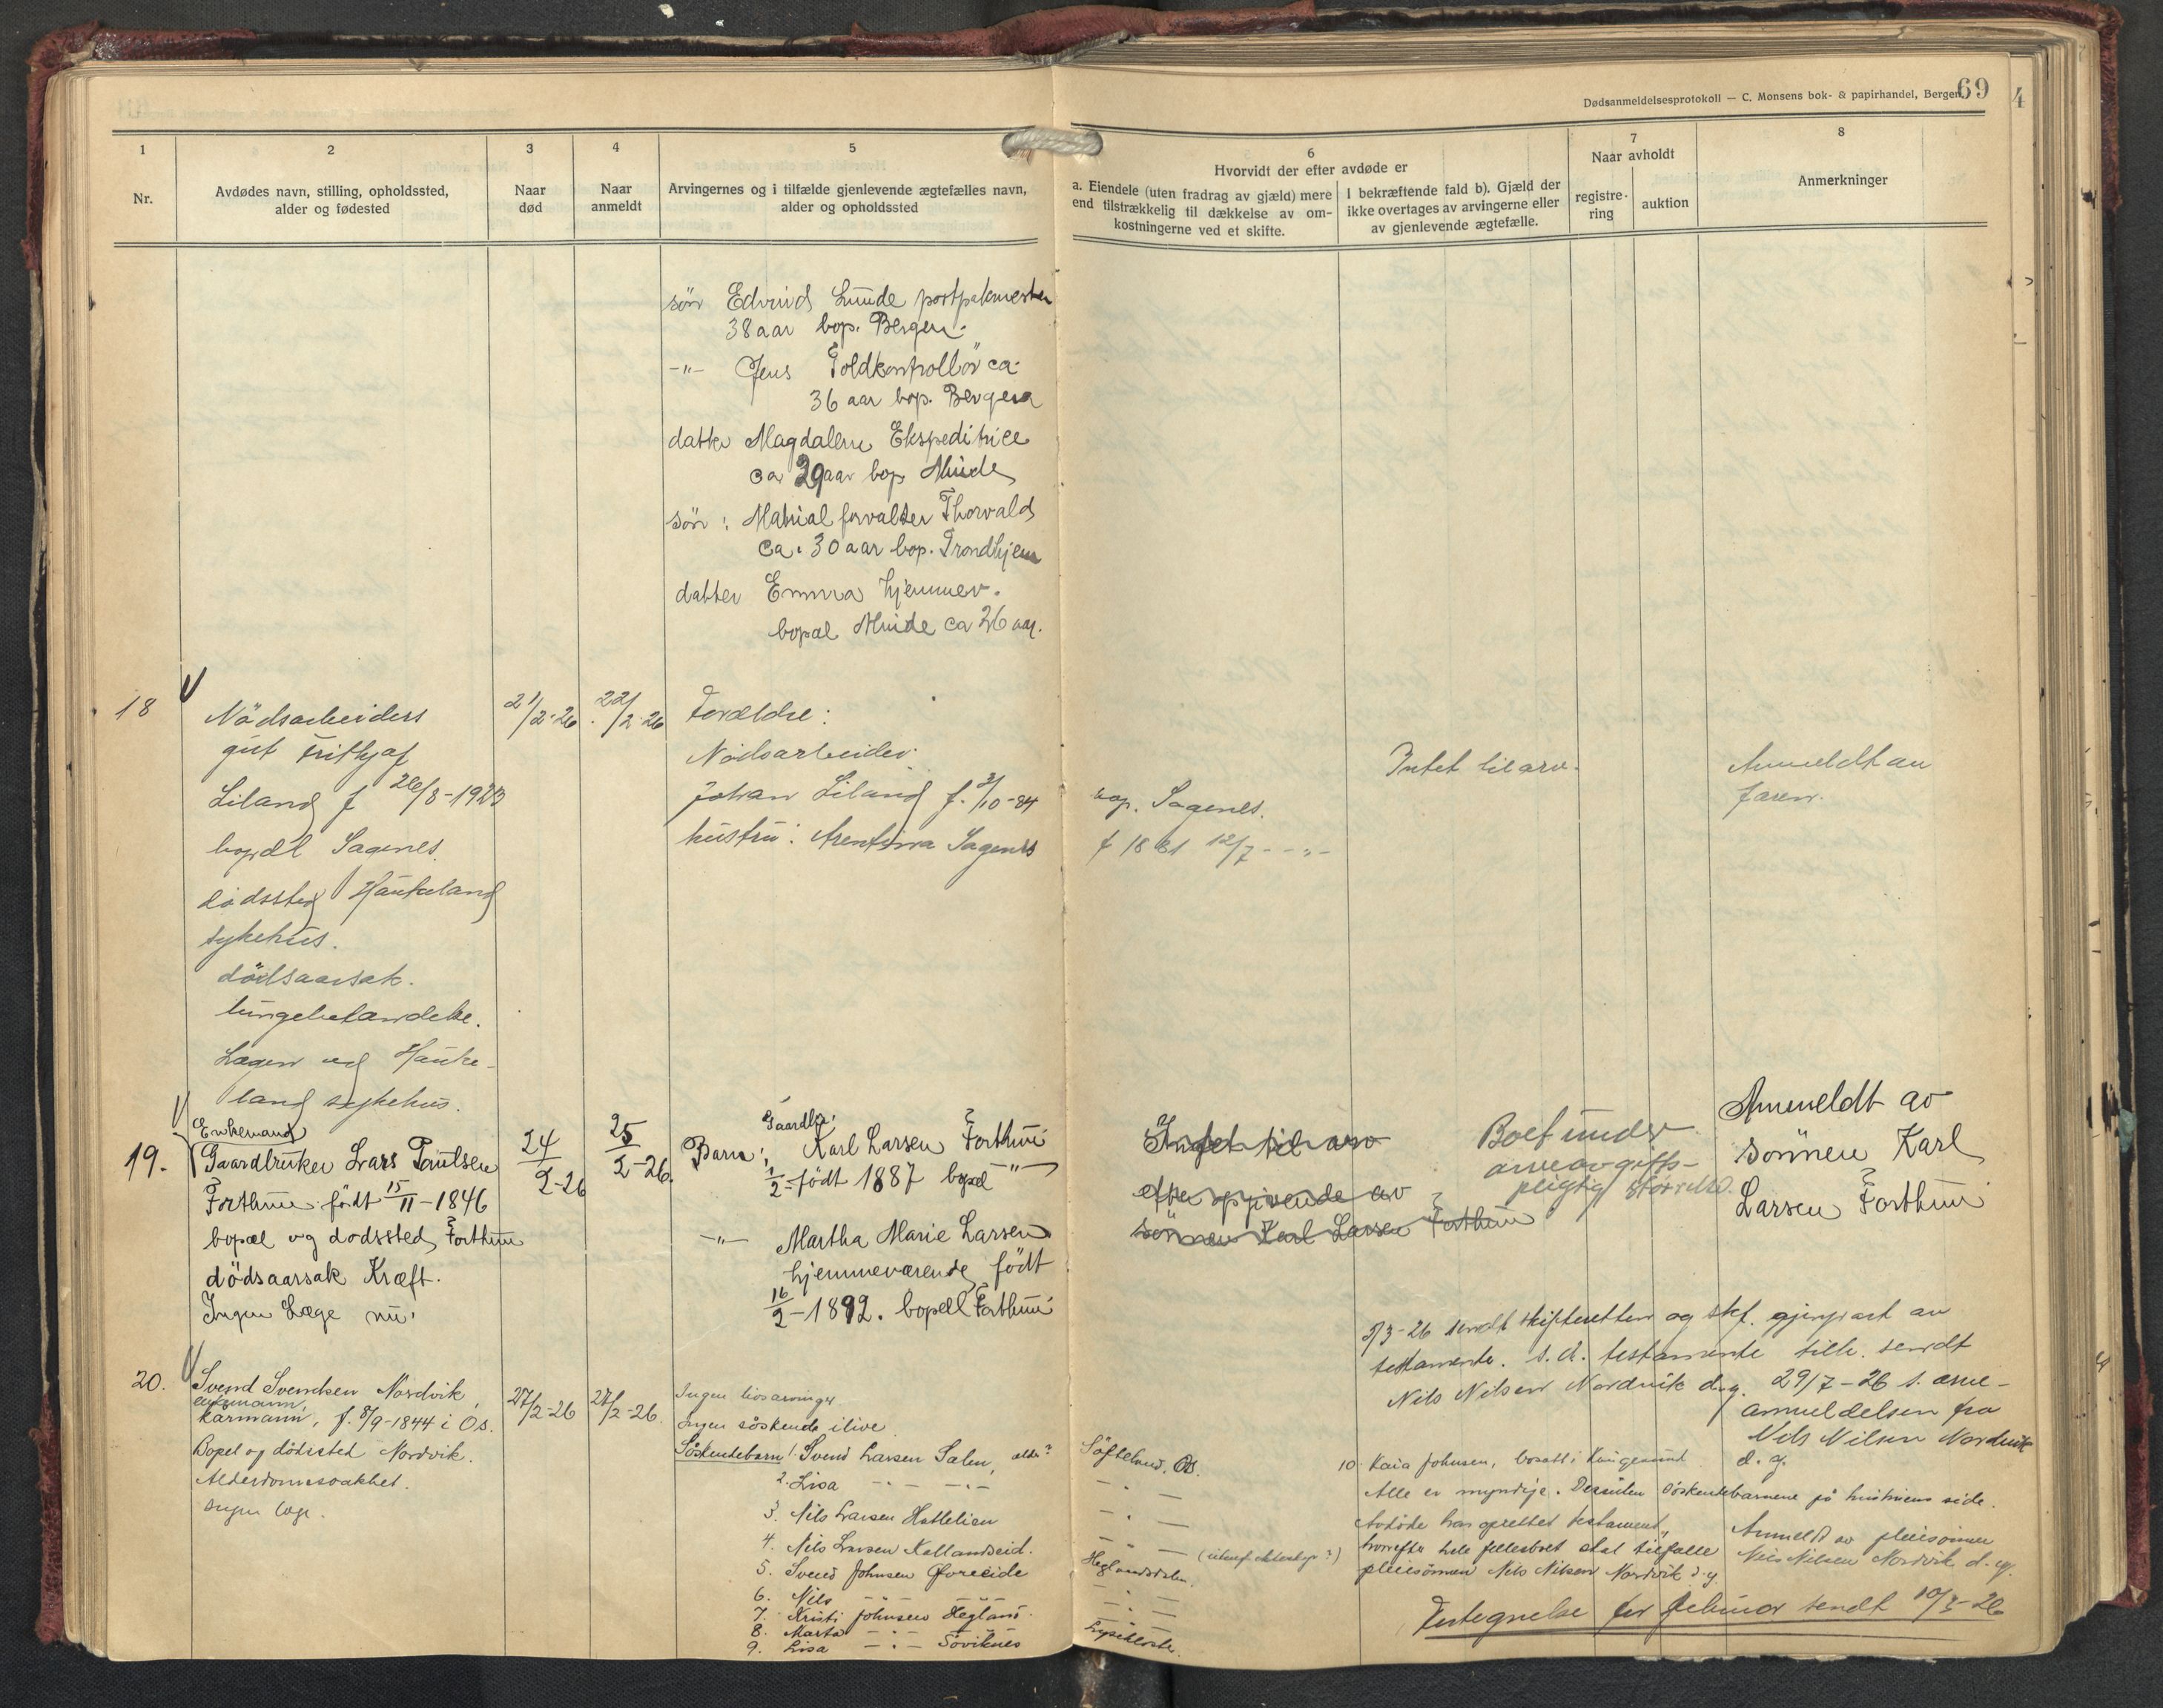 Dødsanmeldelsesprotokoll — C. Monsens bok- & papirhandel, Bergen.
69
4
1
Nr.
2
Avdødes navn, stilling, opholdssted,
alder og fødested
3
Naar
død
4
Naar
anmeldt
5
Arvingernes og i tilfælde gjenlevende ægtefælles navn,
alder og opholdssted
6
Hvorvidt der efter avdøde er
a. Eiendele (uten fradrag av gjæld) mere
end tilstrækkelig til dækkelse av om-
kostningerne ved et skifte.
I bekræftende fald b). Gjæld der
ikke overtages av arvingerne eller
av gjenlevende ægtefælle.
7
Naar avholdt
registre-
ring
auktion
8
Anmerkninger
sön Edvind Lunde postpakmester
38 aar bop. Bergen.
-"- Jens Toldkontrollör ca.
36 aar bop. Bergen
datter Magdalene Ekspeditrice
ca 29 aar bop. Minde
sön : Matrial forvalter Thorvald
ca. 30 aar bop. Trondhjem
datter Emma hjemmev.
bopæl Minde ca 26 aar.
18
Nödsarbeiders
gut Frithjof
Liland f 26/8-1923
bopæl Sagenes.
dödssted Haukeland
sykehus.
dödsaarsak.
lungebetændelse.
Lægen ved Hauke-
land sykehus.
21/2-26
22/2-26
Forældre:
Nödsarbeider
Johan Liland f. 3/10-84
hustru: Arentina Sagenes
bop. Sagenes.
f 1881 12/7 - - " -
Intet til arv.
Anmeldt av
faren.
19.
Enkemand
Gaardbruker Lars Poulsen
Forthun født 15/11-1846
bopæl og dødssted Forthun
dödsaarsak Kræft.
Ingen Læge nu.
24/2-26
25/2-26.
Gaardbr.
Barn: Karl Larsen Forthun
1/2 - født 1887 bopæl -"-
-"- Martha Marie Larsen
hjemmeværende født
16/2-1892. bopæl Forthun
Intet til arv
efter opgivende av
sönnen Karl Larsen Forthun
Boet under
arveavgifts-
pligtig størrelse.
Anmeldt av
sönnen Karl
Larsen Forthun
20.
Svend Svendsen Nordvik,
enkemann,
kårmann, f. 8/9-1844 i Os.
Bopel og dödssted Nordvik.
Alderdomssvakhet.
Ingen læge.
27/2-26
27/2-26.
Ingen livsarvinger
Ingen söskende ilive
Söskendebarn 1. Svend Larsen Salen, alder?
2. Lisa - " - - " -
3. Nils Larsen Hattelien
4. Nils Larsen Kallandseid.
5. Svend Johnsen Øvreeide
6. Nils - " - - " -
7. Kristi Johnsen Hegland.
8. Marta - " -
9. Lisa - " - Söviknes
Söfteland, Os.
- " -
- " -
- " -
Heglandsdalen.
- " -
- " -
Lysekloster.
5/3-26 sendt skifteretten og skf. gjenpart av
testamente. S.d. testamente tilb. sendt
Nils Nilsen Nordvik d.y.
29/7-26 s. arve-
anmeldelsen fra
Nils Nilsen Nordvik
d. y.
10. Kaia Johnsen, bosatt i Haugesund
Alle er myndige. Desuten söskendebarnene på hustruens side.
Avdöde har oprettet testament,
hvorefter hele fellesboet skal tilfalle
pleiesönnen Nils Nilsen Nordvik d.y.
Anmeldt av pleiesönnen
Nils Nilsen Nordvik d. y.
Fortegnelse for Februar sendt 10/3-26